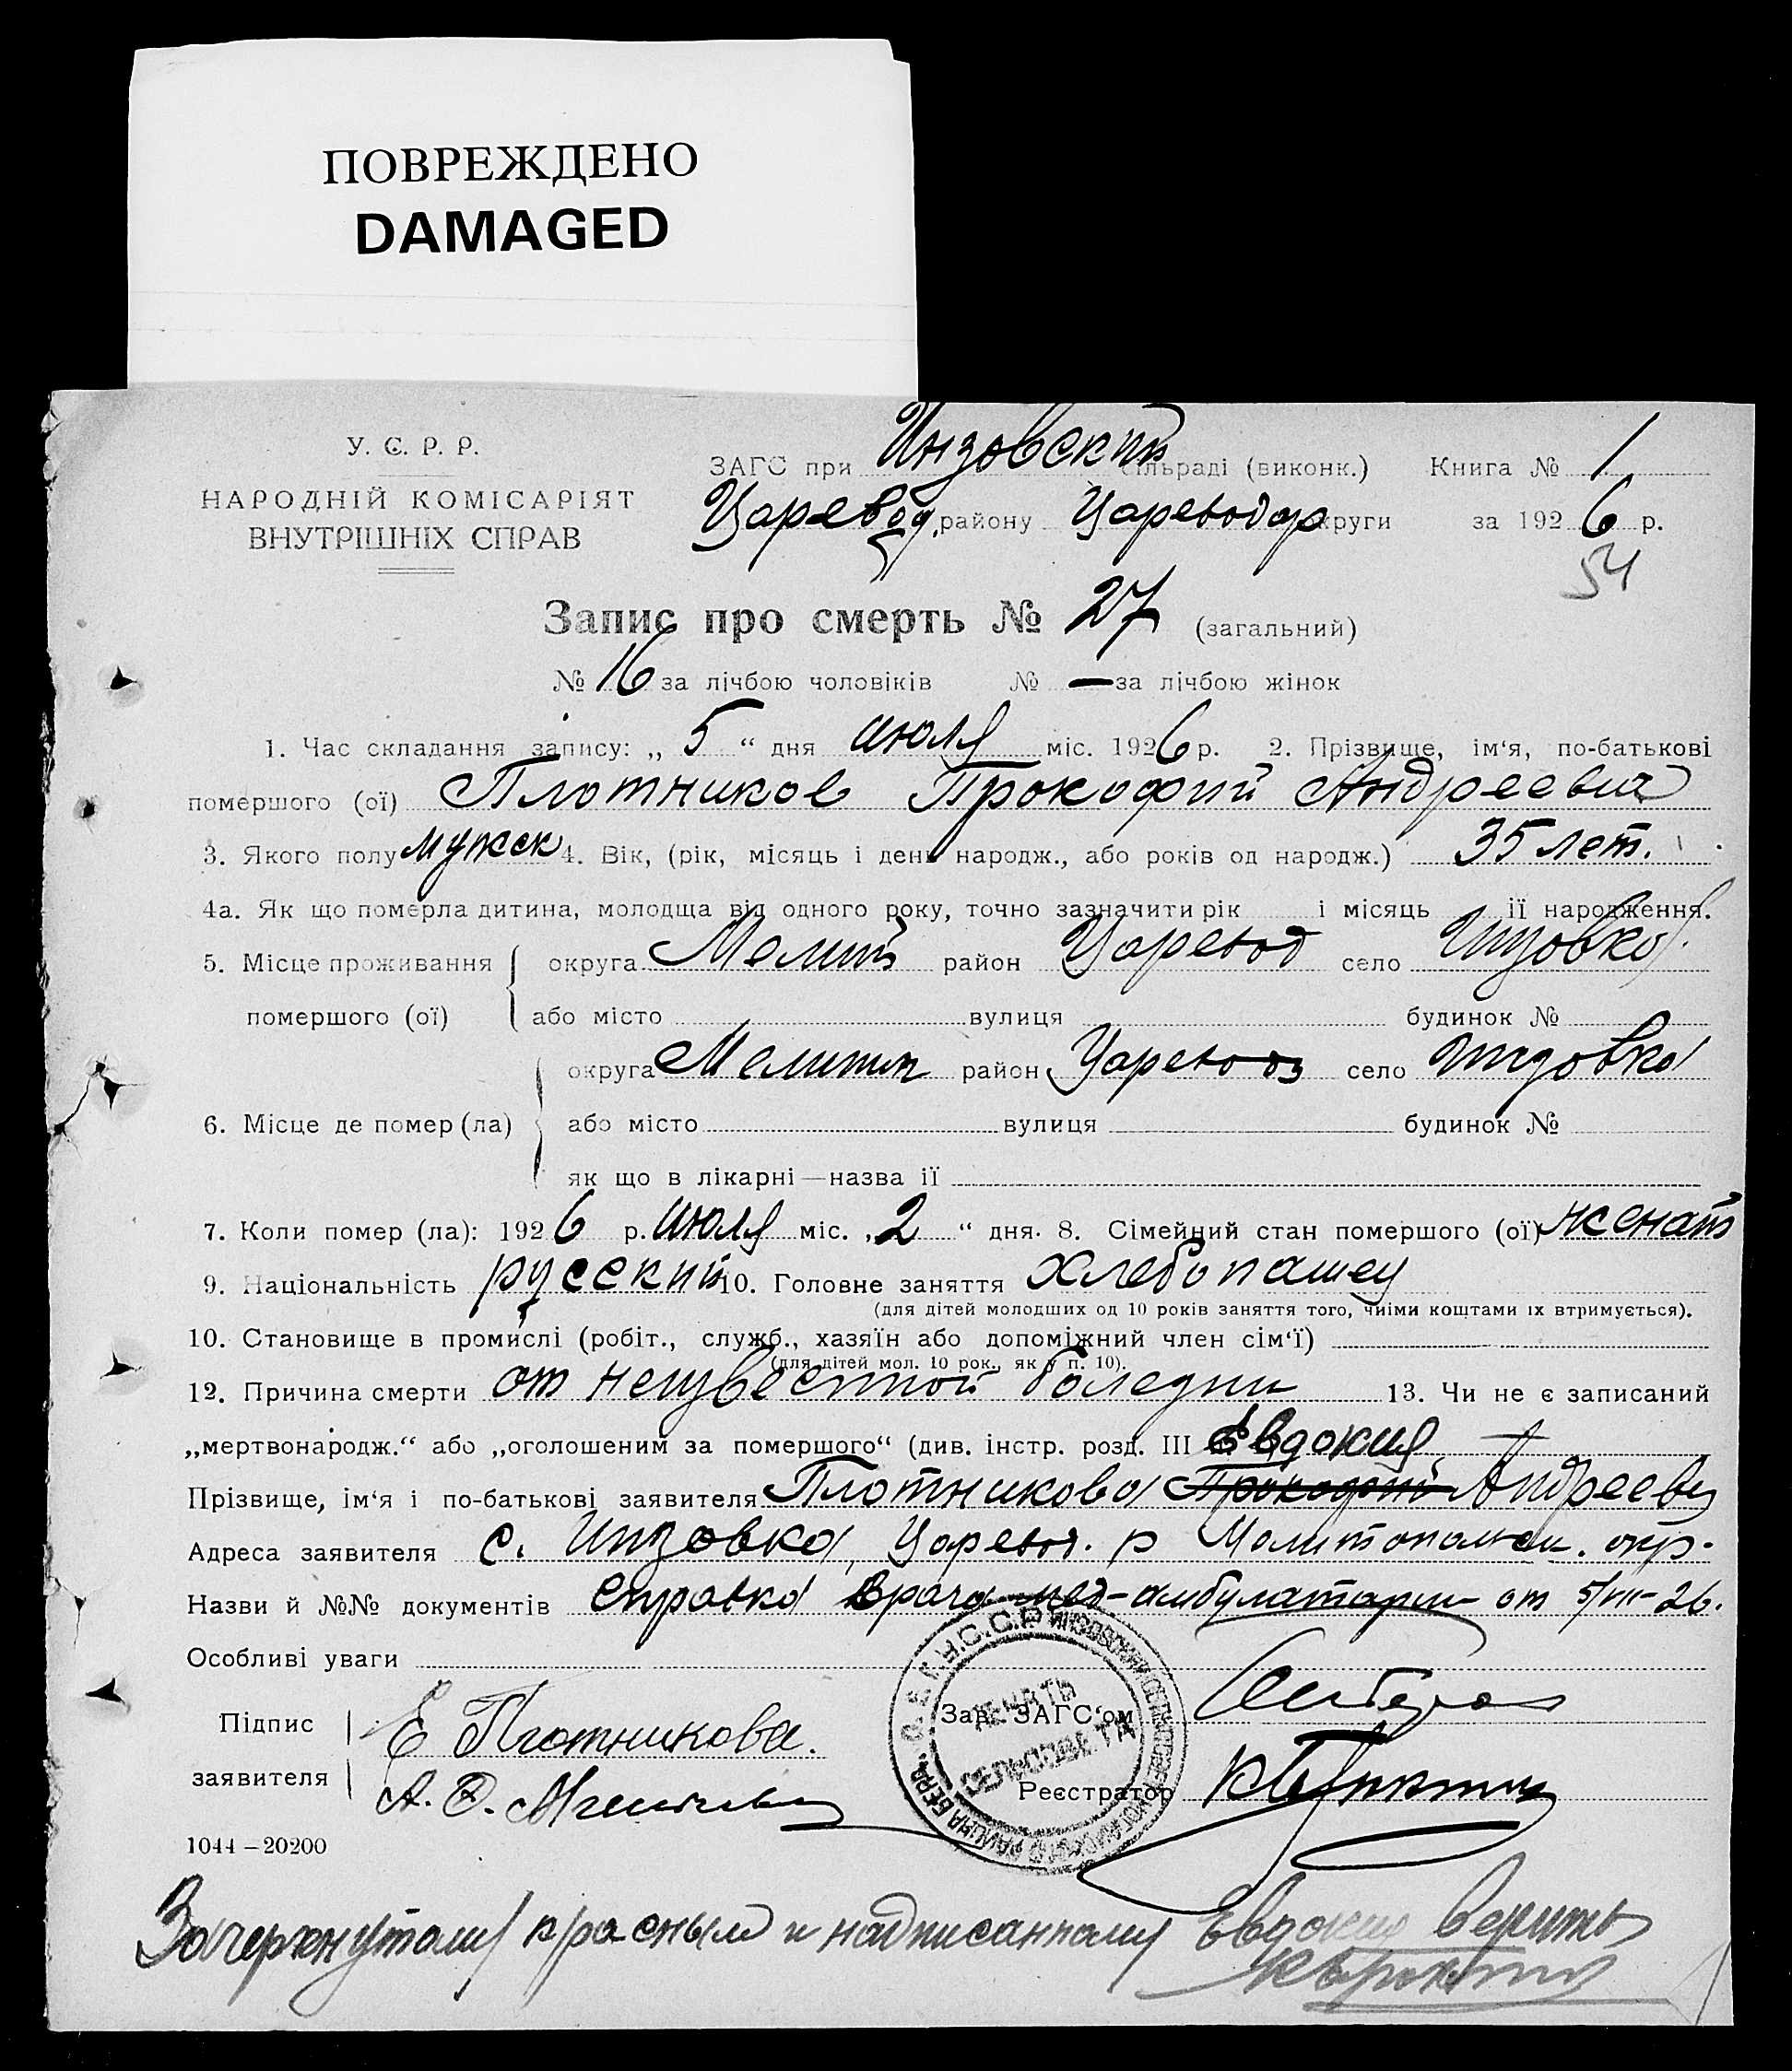 ПОВРЕЖДЕНО
DAMAGED
У. С. Р. Р.
НАРОДНІЙ КОМІСАРІЯТ
ВНУТРІШНІХ СПРАВ
ЗАГС при Инзовский сільраді (виконк.) Книга № 1
Царевод. району Царевод округи за 1926 р.
54
Запис про смерть № 27 (загальний)
№ 16 за лічбою чоловіків № — за лічбою жінок
1. Час складання запису: „ 5 “ дня июля міс. 1926 р. 2. Прізвище, ім‘я, по-батькові
помершого (ої) Плотников Прокофий Андреевич
3. Якого полу мужск 4. Вік, (рік, місяць і день народж., або років од народж.) 35 лет.
4а. Як що померла дитина, молодща від одного року, точно зазначити рік і місяць ії народження.
5. Місце проживання помершого (ої) округа Мелит район Царевод село Инзовка
або місто вулиця будинок №
6. Місце де помер (ла) округа Мелитоп район Царевод село Инзовка
або місто вулиця будинок №
як що в лікарні—назва ії
7. Коли помер (ла): 1926 р. июля міс. „ 2 “ дня. 8. Сімейний стан помершого (ої) женат
9. Національність русский 10. Головне заняття хлебопашец
(для дітей молодших од 10 років заняття того, чиїми коштами їх втримується).
10. Становище в промислі (робіт., служб., хазяїн або допоміжний член сім‘ї)
(для дітей мол. 10 рок., як у п. 10).
12. Причина смерти от неизвестной болезни 13. Чи не є записаний
„мертвонародж.“ або „оголошеним за помершого“ (див. інстр. розд. III Евдокия —
Прізвище, ім‘я і по-батькові заявителя Плотникова Прокофий Андреевн
Адреса заявителя с. Инзовка, Царевод. р Мелитопольск. окр.
Назви й №№ документів Справка врача мед-амбулатории от 5/VII-26.
Особливі уваги
Підпис заявителя Е Плотникова.
Зав. ЗАГС‘ом
Реєстратор
ПЕЧАТЬ
СЕЛЬСОВЕТА
1044—20200
Зачеркнутому красным и надписанному Евдокия верить